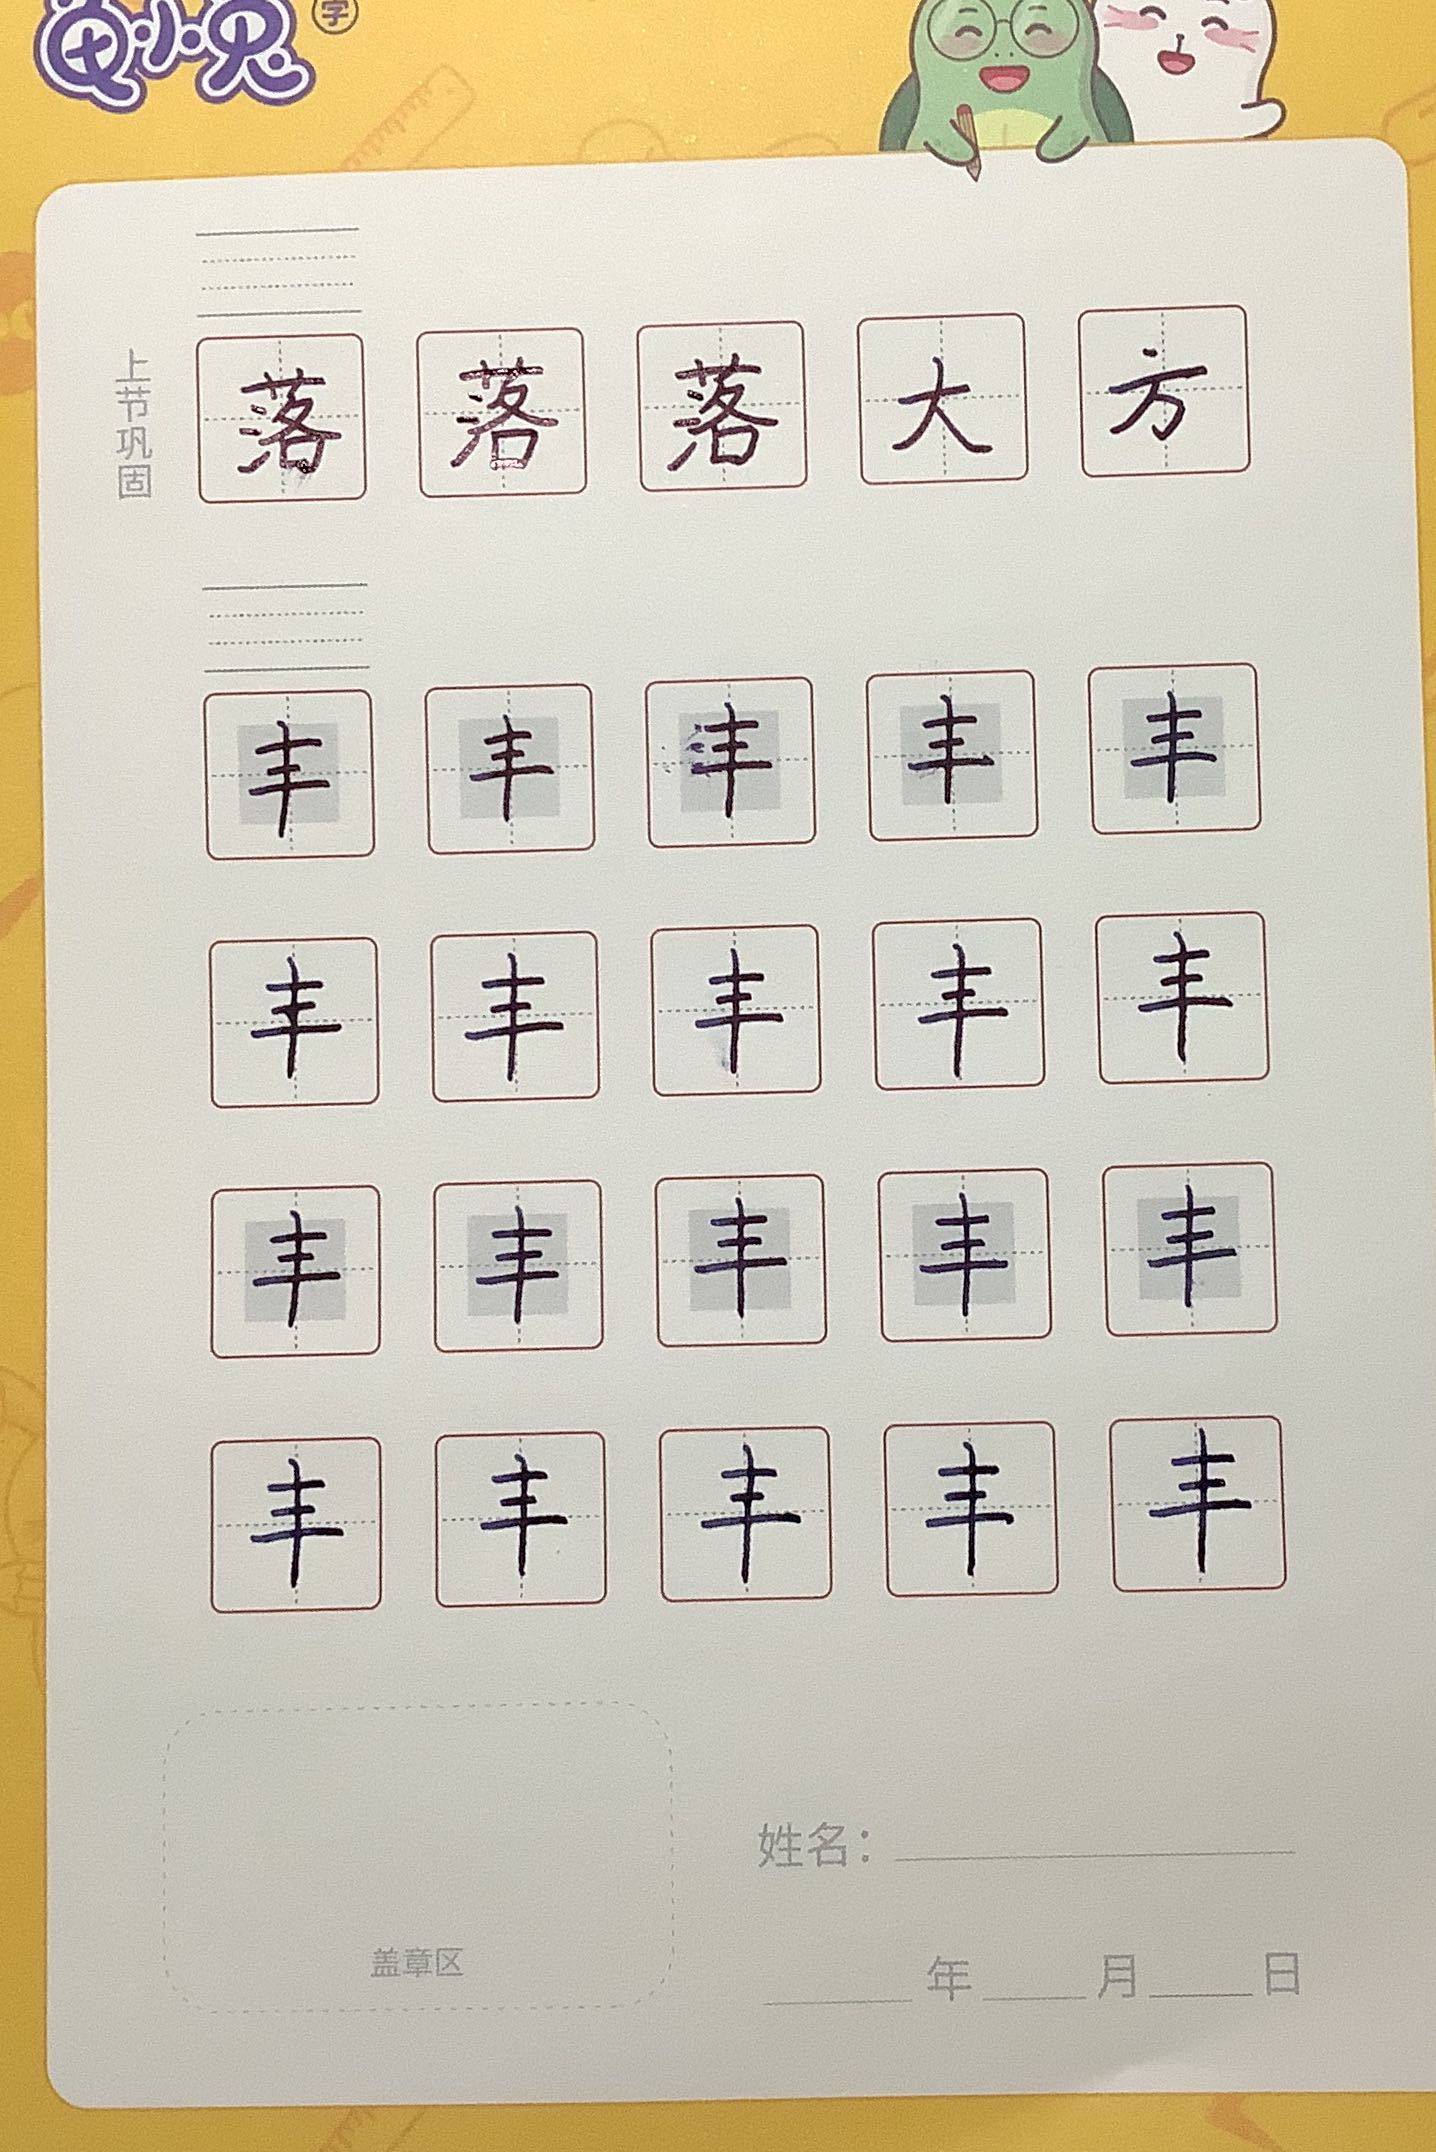 字
上节巩固
落 落 落 大 方
丰 丰 丰 丰 丰
丰 丰 丰 丰 丰
丰 丰 丰 丰 丰
丰 丰 丰 丰 丰
姓名：
盖章区
年 月 日